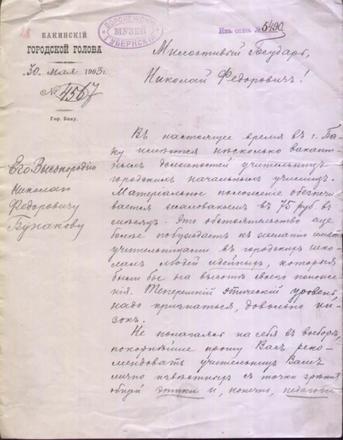 БАКИНСКІЙ
ГОРОДСКОЙ ГОЛОВА
30 мая 1903 г.
№ 4567
Гор. Баку.
ВОРОНЕЖСКІЙ
МУЗЕЙ
ГУБЕРНСКІЙ
5490
Милостивый Государь,
Николай Федоровичъ!
Его Высокородію
Николаю
Федоровичу
Бунакову
Въ настоящее время въ г. Ба-
ку имѣются нѣсколько вакант-
ныхъ должностей учительницъ
городскихъ начальныхъ училищъ.
Матеріальное положеніе обезпечи-
вается жалованіемъ въ 75 руб въ
мѣсяцъ. Это обстоятельство еще
болѣе побуждаетъ къ желанію имѣть
учительницами въ городскихъ шко-
лахъ людей идейныхъ, которыя
были бы на высотѣ своего положе-
нія. Теперешній этическій уровень,
надо признаться, довольно ни-
зокъ.
Не полагаясь на себя въ выборѣ,
покорнѣйше прошу Васъ реко-
мендовать учительницъ Вамъ
лично извѣстныхъ съ точки зрѣнія
общей этики и, конечно, педагоги-